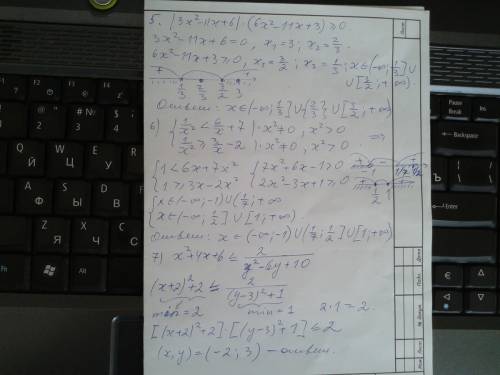 5. |3x²-11x+6|·(6x²-11x+3)≥0
3x²-11x+6=0, x₁=3; x₂=2/3.
6x²-11x+3≥0, x₁=3/2; x₂=1/3; x∈(-∞; 1/3]∪
∪[3/2; +∞)
1/3 2/3 3/2 3
Ответ: x∈(-∞; 1/3]∪{2/3}∪[3/2; +∞)
6) { 1/x² < 6/x + 7 |·x²≠0, x²>0
{ 1/x² ≥ 3/x - 2 |·x²≠0, x²>0 =>
{ 1<6x+7x² { 7x²+6x-1>0
{ 1≥3x-2x² { 2x²-3x+1≥0
-1 1/7
1/2 1
{ x∈(-∞;-1)∪(1/7; +∞
{ x∈(-∞; 1/2]∪[1; +∞
Ответ: x∈(-∞;-1)∪(1/7; 1/2]∪[1; +∞)
7) x²+4x+6 ≤ 2/(y²-6y+10)
(x+2)²+2 ≤ 2/((y-3)²+1)
min=2 min=1 2·1=2.
[(x+2)²+2]·[(y-3)²+1]≤2
(x,y)=(-2;3) - ответ.